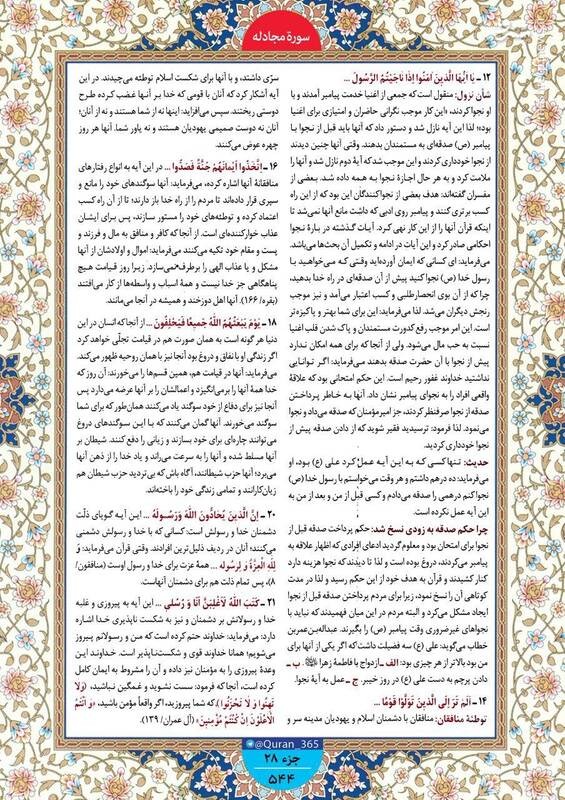 سورة مجادله
۱۲ ـ یَا أیُّهَا الَّذِینَ آمَنُوا إِذَا نَاجَیْتُمُ الرَّسُولَ ...
شأن نزول: منقول است که جمعی از اغنیا خدمت پیامبر آمدند و با
او نجوا کردند، «این کار موجب نگرانی حاضران و امتیازی برای اغنیا
بود»؛ لذا این آیه نازل شد و دستور داد که آنها باید قبل از نجوا با
پیامبر (ص) صدقه‌ای به مستمندان بدهند. وقتی آنها چنین دیدند
از نجوا خودداری کردند و این موجب شد که آیهٔ دوم نازل شد و آنها را
ملامت کرد و به هر حال اجازهٔ نجوا به همه داده شد. بعضی از
مفسران گفته‌اند: هدف بعضی از نجواکنندگان این بود که از این راه
کسب برتری کنند و پیامبر روی ادبی که داشت مانع آنها نمی‌شد تا
اینکه قرآن آنها را از این کار نهی کرد. آیات گذشته در بارهٔ نجوا
احکامی صادر کرد و این آیات در ادامه و تکمیل آن بحث‌ها می‌باشد.
می‌فرماید: ای کسانی که ایمان آورده‌اید وقتی که می‌خواهید با
رسول خدا (ص) نجوا کنید پیش از آن صدقه‌ای در راه خدا بدهید،
چرا که از آن بوی انحصارطلبی و کسب اعتبار می‌آمد و نیز موجب
رنجش دیگران می‌شد. لذا می‌فرماید: این برای شما بهتر و پاکیزه‌تر
است. این امر موجب رفع کدورت مستمندان و پاک شدن قلب اغنیا
نسبت به حب مال می‌شود. ولی از آنجا که برای همه امکان ندارد
پیش از نجوا با آن حضرت صدقه بدهند می‌فرماید: اگر توانایی
نداشتید خداوند غفور رحیم است. این حکم امتحانی بود که علاقهٔ
واقعی افراد را به نجوای پیامبر نشان داد. آنها به خاطر پرداختن
صدقه از نجوا صرفنظر کردند، جز امیرمؤمنان که صدقه می‌داد و نجوا
می‌نمود. لذا فرمود: ترسیدید فقیر شوید که از دادن صدقه پیش از
نجوا خودداری کردید.
حدیث: تنها کسی که به این آیه عمل کرد علی (ع) بود، او
می‌فرماید: ده درهم داشتم و هر وقت می‌خواستم با رسول خدا (ص)
نجوا کنم درهمی را صدقه می‌دادم و کسی قبل از من و بعد از من به
این آیه عمل نکرده است.
چرا حکم صدقه به زودی نسخ شد: حکم پرداخت صدقه قبل از
نجوا برای امتحان بود و معلوم گردید ادعای افرادی که اظهار علاقه به
پیامبر می‌کردند، دروغ بوده است و لذا تا دیدند که نجوا هزینه دارد
کنار کشیدند و قرآن به هدف خود از این حکم رسید و لذا در مدت
کوتاهی آن را نسخ نمود، زیرا برای مردم پرداختن صدقه قبل از نجوا
ایجاد مشکل می‌کرد و البته مردم در این میان فهمیدند که نباید با
نجواهای غیرضروری وقت پیامبر (ص) را بگیرند. عبدالله‌بن‌عمربن
خطاب می‌گوید: علی (ع) سه فضیلت داشت که اگر یکی از آنها برای
من بود بالاتر از هر چیزی بود: الف ـ ازدواج با فاطمهٔ زهرا. ب ـ
دادن پرچم به دست علی (ع) در روز خیبر. ج ـ عمل به آیهٔ نجوا.
۱۴ ـ أَلَمْ تَرَ إِلَى الَّذِینَ تَوَلَّوْا قَوْمًا ...
توطئهٔ منافقان: منافقان با دشمنان اسلام و یهودیان مدینه سر و
سرّی داشتند، و با آنها برای شکست اسلام توطئه می‌چیدند. در این
آیه آشکار کرد که آنان با قومی که خدا بر آنها غضب کرده طرح
دوستی ریختند. سپس می‌افزاید: اینها نه از شما هستند و نه از آنان؛
آنان نه دوست صمیمی یهودیان هستند و نه یاور شما. آنها هر روز
چهره عوض می‌کنند.
۱۶ ـ اِتَّخَذُوا أَیْمَانَهُمْ جُنَّةً فَصَدُّوا ... در این آیه به انواع رفتارهای
منافقانهٔ آنها اشاره کرده، می‌فرماید: آنها سوگندهای خود را مانع و
سپری قرار داده‌اند تا مردم را از راه خدا باز دارند؛ تا از آن راه کسب
اعتماد کرده و توطئه‌های خود را مستور سازند، پس برای ایشان
عذاب خوارکننده‌ای است. از آنجا که کافر و منافق به مال و فرزند و
پست و مقام خود تکیه می‌کنند می‌فرماید: اموال و اولادشان از آنها
مشکل و یا عذاب الهی را برطرف نمی‌سازد. زیرا روز قیامت هیچ
پناهگاهی جز خدا نیست و همهٔ اسباب و واسطه‌ها از کار می‌افتند
(بقره/ ۱۶۶). آنها اهل دوزخند و همیشه در آنجا می‌مانند.
۱۸ ـ یَوْمَ یَبْعَثُهُمُ اللَّهُ جَمِیعًا فَیَحْلِفُونَ ... از آنجا که انسان در این
دنیا هر گونه است به همان صورت هم در قیامت تجلّی خواهد کرد
اگر زندگی او با نفاق و دروغ بود آنجا نیز با همان روحیه ظهور می‌کند.
می‌فرماید: آنها در قیامت هم، همین قسم‌ها را می‌خورند: آن روز که
خدا همهٔ آنها را برمی‌انگیزد و اعمالشان را بر آنها عرضه می‌دارد پس
آنجا نیز برای دفاع از خود سوگند یاد می‌کنند همان‌طور که برای شما
سوگند می‌خورند. آنها گمان می‌کنند که با این سوگندهای دروغ
می‌توانند چاره‌ای برای خود بسازند و زیانی را دفع کنند. شیطان بر
آنها مسلط شده و آنها را به سرعت می‌راند و یاد خدا را از ذهن آنها
می‌برد؛ آنها حزب شیطانند، آگاه باش که بی‌تردید حزب شیطان هم
زیان‌کارانند و تمامی زندگی خود را باخته‌اند.
۲۰ ـ إِنَّ الَّذِینَ یُحَادُّونَ اللَّهَ وَرَسُولَهُ ... این آیه گویای ذلّت
دشمنان خدا و رسولش است: کسانی که با خدا و رسولش دشمنی
می‌کنند؛ آنان در ردیف ذلیل‌ترین افرادند. وقتی قرآن می‌فرماید: وَ
لِلَّهِ الْعِزَّةُ وَ لِرَسُولِهِ ... همهٔ عزت برای خدا و رسول اوست (منافقون/
۸)، پس تمام ذلت هم برای دشمنان آنهاست.
۲۱ ـ کَتَبَ اللَّهُ لَأَغْلِبَنَّ أَنَا وَ رُسُلِي ... این آیه به پیروزی و غلبه
خدا و رسولانش بر دشمنان و نیز به شکست ناپذیری خدا اشاره
دارد: می‌فرماید: خداوند حتم کرده است که من و رسولانم پیروز
می‌شویم؛ همانا خداوند قوی و شکست‌ناپذیر است. خداوند این
وعدهٔ پیروزی را به مؤمنان نیز داده و آن را مشروط به ایمان کامل
کرده است، آنجا که فرمود: سست نشوید و غمگین نباشید، ﴿وَلَا
تَهِنُوا وَ لَا تَحْزَنُوا﴾، که شما پیروزید، اگر واقعاً مؤمن باشید، ﴿وَ أَنْتُمُ
الْأَعْلَوْنَ إِنْ کُنْتُمْ مُؤْمِنِینَ﴾ (آل عمران/ ۱۳۹).
@Quran_365
جزء ۲۸
۵۴۴